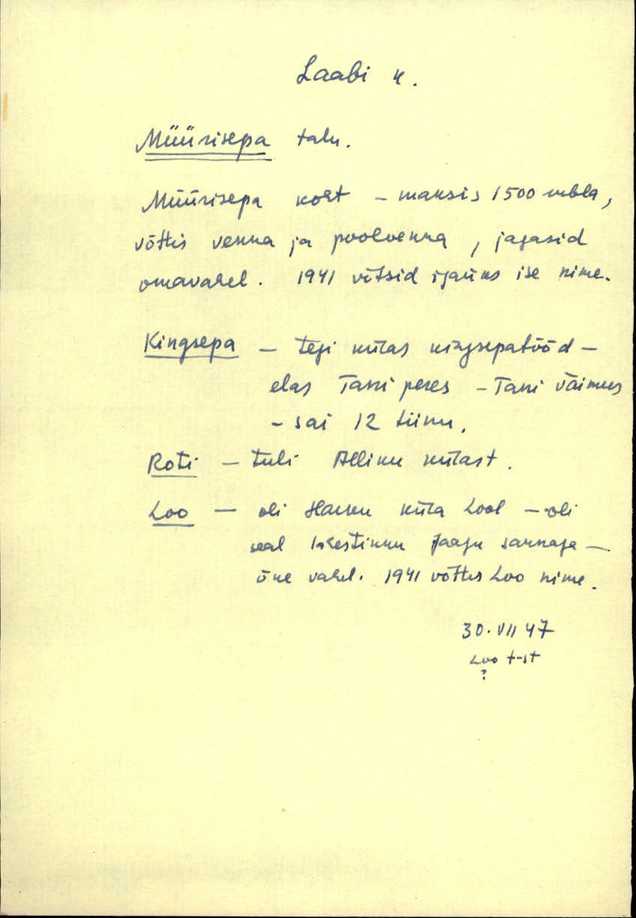 Laabi k.
Müürisepa talu.
Müürisepa koht – maksis 1500 rubla,
võttis venna ja poolvenna, jagasid
omavahel. 1941 võtsid igaüks ise nime.
Kingsepa – tegi külas kingsepatööd –
elas Tani peres – Tani väimees
– sai 12 tiinu.
Roti – tuli Alliku külast.
Loo – oli Harku küla Lool – oli
seal Jaagu saunage –
õue vahel. 1941 võttis Loo nime.
30.VII 47
Loo t-st
?